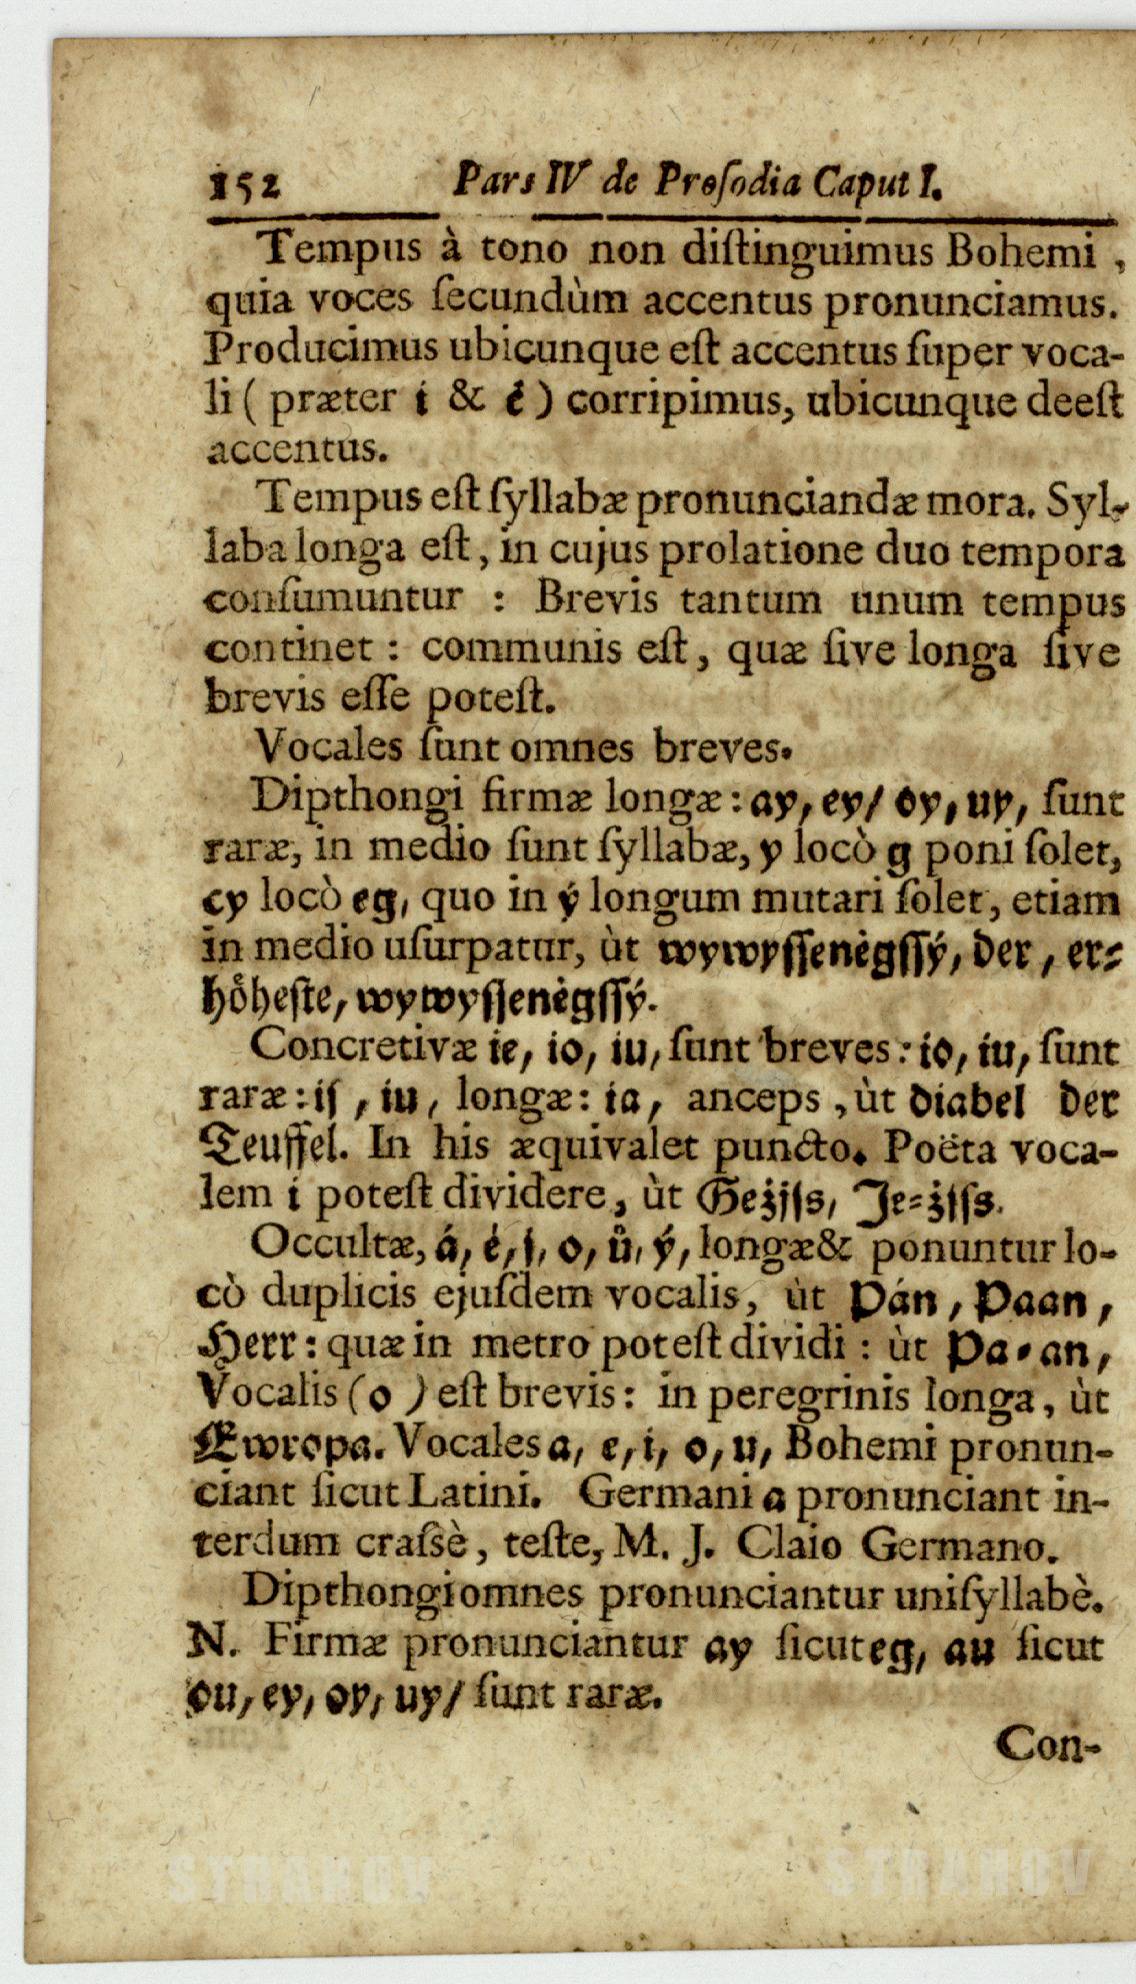 152 Pars IV de Prosodia Caput I.
Tempus à tono non diſtinguimus Bohemi,
quia voces ſecundùm accentus pronunciamus.
Producimus ubicunque eſt accentus ſuper voca-
li (præter i & ė) corripimus, ubicunque deeſt
accentus.
Tempus eſt ſyllabæ pronunciandæ mora. Syl-
laba longa eſt, in cujus prolatione duo tempora
conſumuntur : Brevis tantum unum tempus
continet : communis eſt, quæ ſive longa ſive
brevis eſſe poteſt.
Vocales ſunt omnes breves.
Dipthongi firmæ longæ: ay, ey/ oy, uy, ſunt
raræ, in medio ſunt ſyllabæ, y locò g poni ſolet,
ey locò eg, quo in ý longum mutari ſolet, etiam
in medio uſurpatur, ùt wywyſſenėgſſý, der, er⸗
hoͤheſte, wywyſſenėgſſý.
Concretivæ ie, io, iu, ſunt breves: io, iu, ſunt
raræ: ij, iu, longæ: ia, anceps, ùt diabel der
Teuffel. In his æquivalet puncto. Poëta voca-
lem i poteſt dividere, ùt Gežjſs, Je⸗žjſs.
Occultæ, á, ė, j, o, ů, ý, longæ & ponuntur lo-
cò duplicis ejuſdem vocalis, ùt Pán, Paan,
Herr: quæ in metro poteſt dividi : ùt Pa⸗an,
Vocalis (o) eſt brevis: in peregrinis longa, ùt
Ewropa. Vocales a, e, i, o, u, Bohemi pronun-
ciant ſicut Latini. Germani a pronunciant in-
terdum craſsè, teſte, M. J. Claio Germano.
Dipthongi omnes pronunciantur uniſyllabè.
N. Firmæ pronunciantur ay ſicut eg, au ſicut
ou, ey, oy, uy/ ſunt raræ.
Con-
STRAHOV STRAHOV